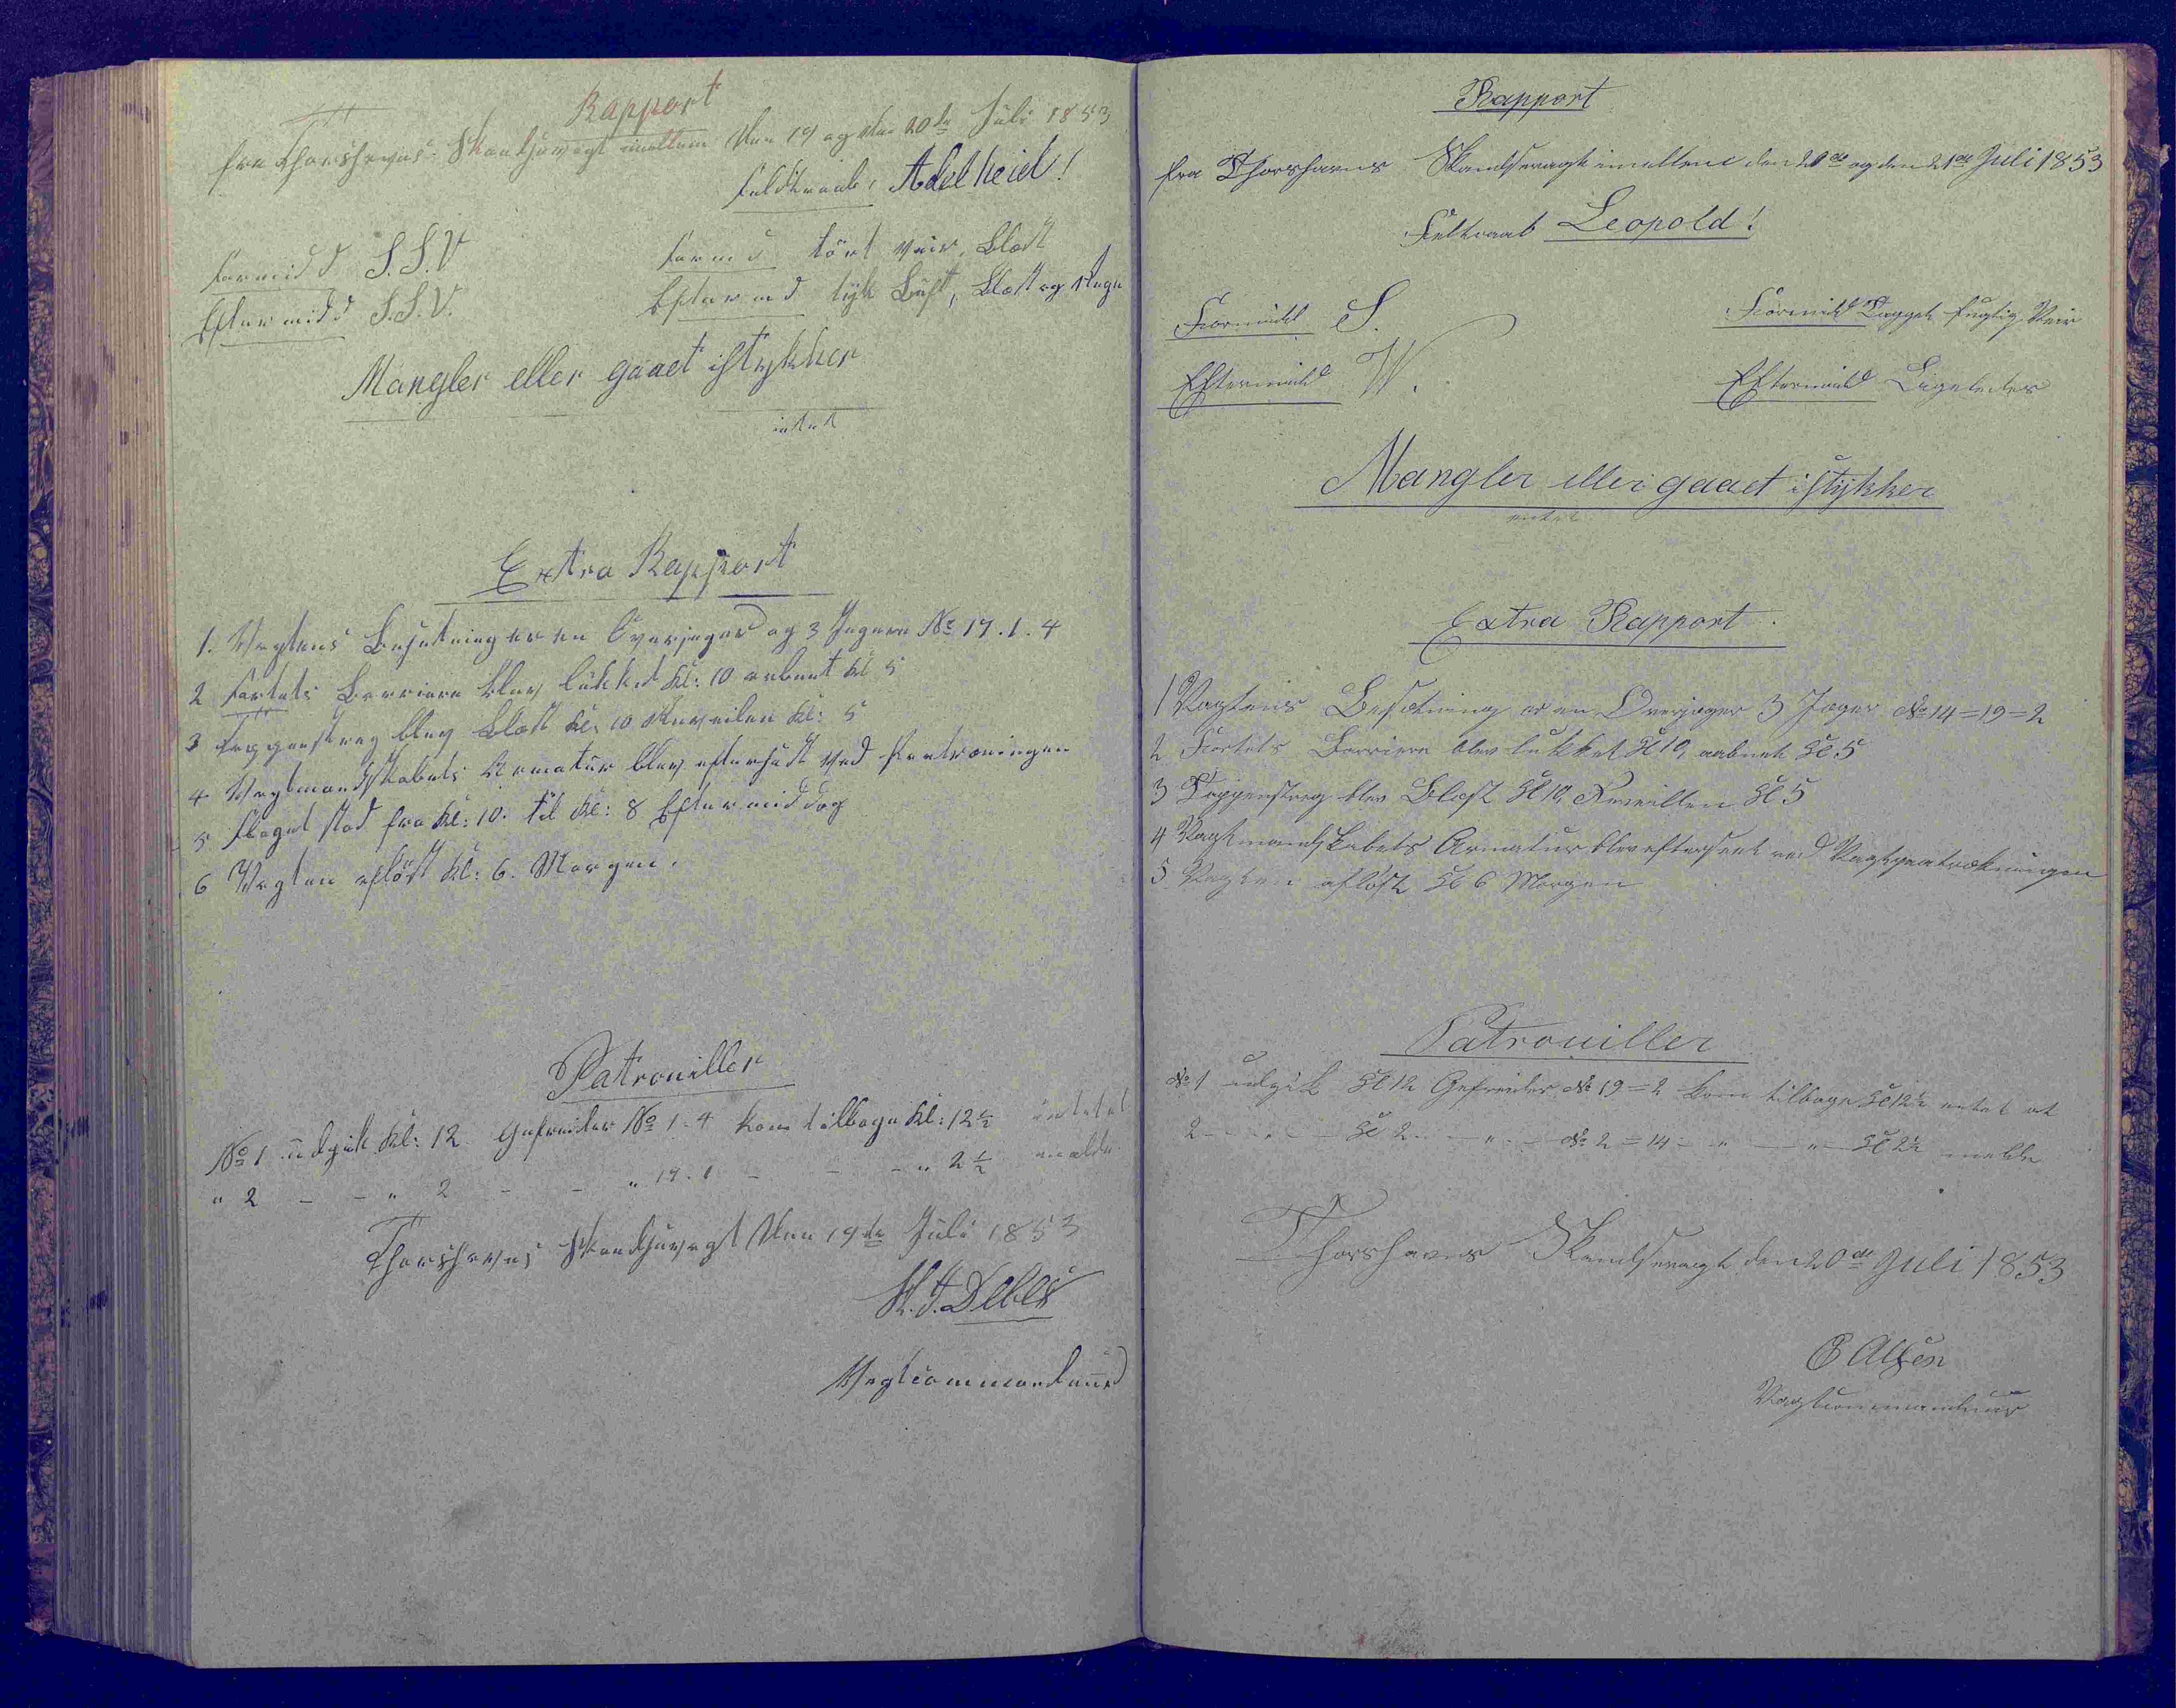 Rapport
fra Thorshavns Skandsevagt imellem den 19 og den 20de Juli 1853
Feldtraab, Adelheid!
Formidd S.S.V
Form d tört Veir, Blæst
Eftermidd S.S.V.
Efterm d tyk Luft, Blæst og Regn
Mangler eller gaaet istykker
intet
Extra Rapport
1. Vagtens Besætning er en Overjæger og 3 Jægere No 19. 1. 4
2 Fortets Barriere blev lükket Kl: 10 aabnet Kl 5
3 Tappenstreg blev Blæst Kl: 10 Reveillen Kl: 5
4 Vagtmandskabets Armatur blev efterseet ved Fratrædningen
5 Flaget stod fra Kl: 10. til Kl: 8 Eftermiddag
6 Vagten aflöst Kl: 6. Morgen.
Patrouiller
No 1 üdgik Kl: 12 Gefreider No 1-4 kom tilbage Kl: 12½ intet at
" 2 - - " 2 - - " 19. 1 - - - " 2½ melde
Thorshavns Skandsevagt den 19de Juli 1853
H. J. Debes
Vagtcommandeur
Rapport
fra Thorshavns Skandsevagt imellem den 20de og den 21de Juli 1853
Feltraab Leopold!
Formidd S.
Formidd Tagget fugtig Veir
Eftermidd W.
Eftermidd Ligeledes
Mangler eller gaaet istykker
intet
Extra Rapport.
1 Vagtens Besætning er en Overjæger 3 Jæger No 14=19=2
2 Fortets Barriere blev lukket Kl 10, aabnet Kl 5
3 Tappenstreg blev Blæst Kl 10, Reveillen Kl 5
4 Vagtmandskabets Armatur blev efterseet ved Vagtfratrædningen
5 Vagten aflöst Kl 6 Morgen
Patrouiller
No 1 udgik Kl 12 Gefreider No 19=2 kom tilbage Kl 12½ intet at
2 - - " - - Kl 2 - - " - - No 2=14 - " - - " - Kl 2½ melde
Thorshavns Skandsevagt den 20de Juli 1853
Vagtcommandeur